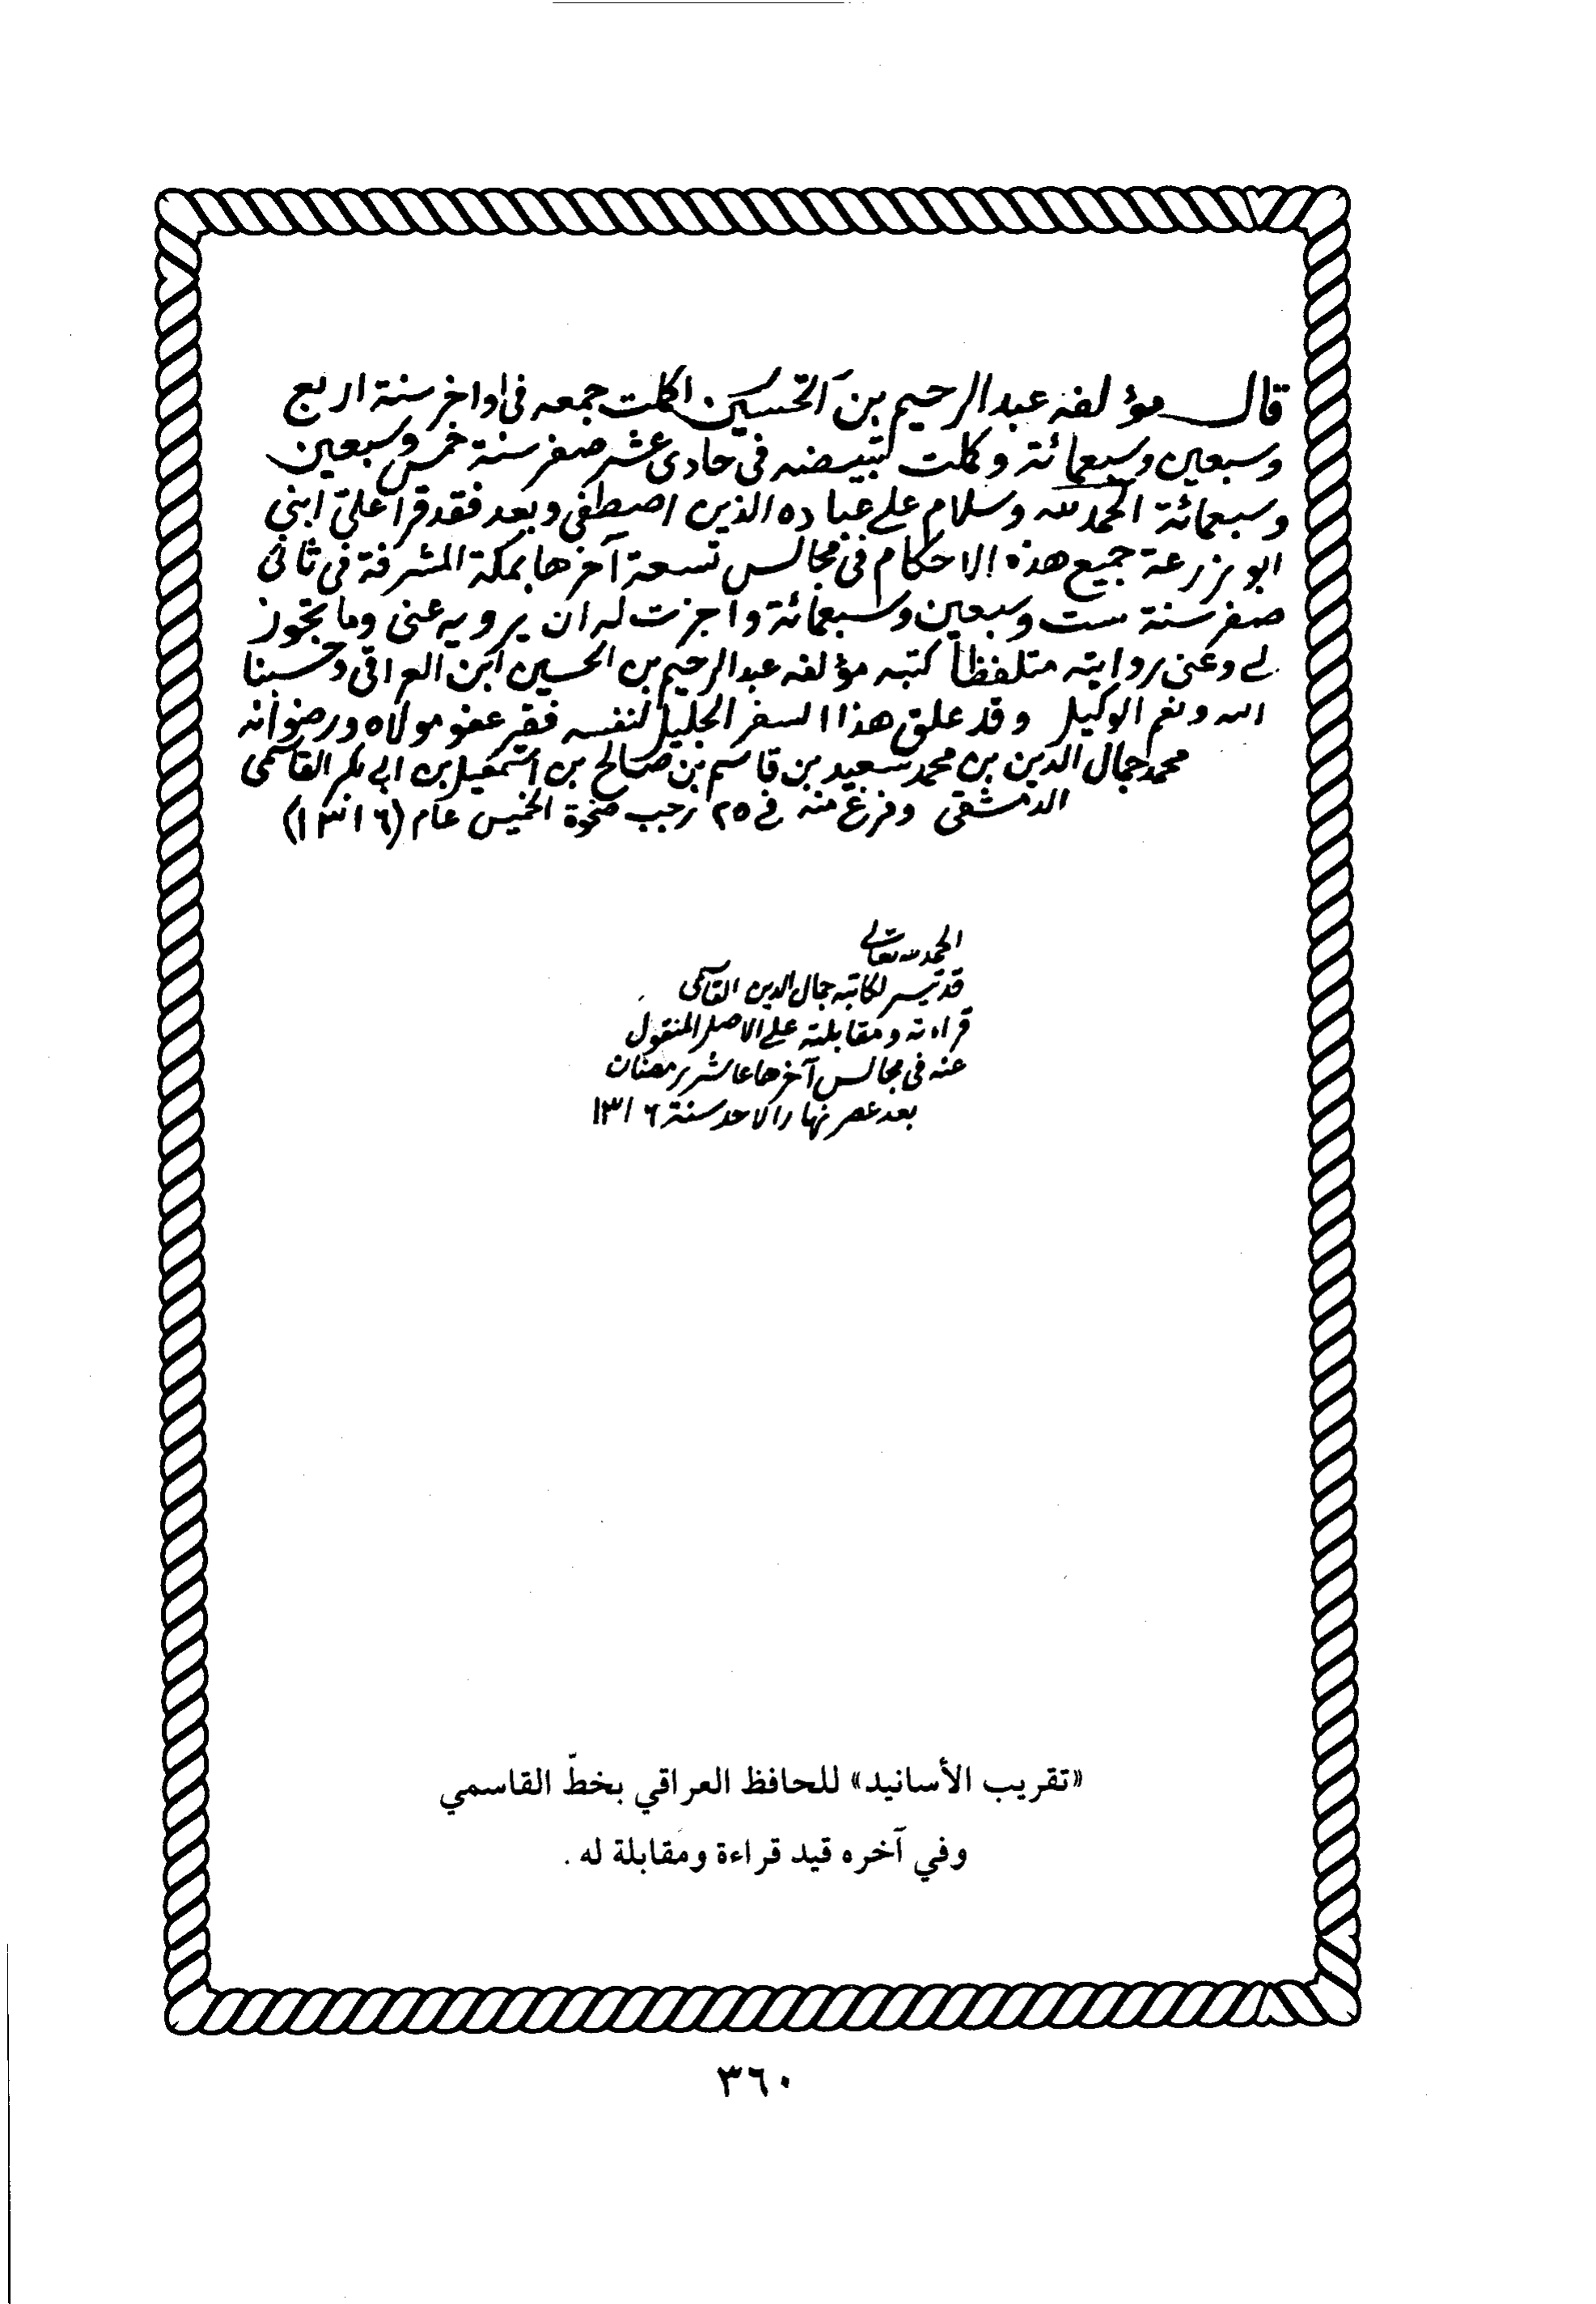 قال مؤلفه عبد الرحيم بن الحسين اكملت جمعه فى اواخر سنة اربع
وسبعين وسبعمائة وكملت تبييضه فى حادى عشر صفر سنة خمس وسبعين
وسبعمائة الحمد لله وسلام على عباده الذين اصطفى وبعد فقد قرأ علىّ ابنى
ابو زرعة جميع هذه الاحكام فى مجالس تسعة آخرها بمكة المشرفة فى ثانى
صفر سنة ست وسبعين وسبعمائة واجزت له ان يرويه عنى وما يجوز
لى وعنى روايته متلفظاً كتبه مؤلفه عبد الرحيم بن الحسين ابن العراقى وحسبنا
الله ونعم الوكيل وقد علق هذا السفر الجليل لنفسه فقير عفو مولاه ورضوانه
محمد جمال الدين بن محمد سعيد بن قاسم بن صالح بن اسمعيل بن ابى بكر القاسمى
الدمشقى وفرغ منه فى ٢٥ رجب ضحوة الخميس عام (١٣١٦)
الحمد لله تعالى
قد تيسر لكاتبه جمال الدين القاسمى
قراءته ومقابلته على الاصل المنقول
عنه فى مجالس آخرها عاشر رمضان
بعد عصر نهار الاحد سنة ١٣١٦
«تقريب الأسانيد» للحافظ العراقي بخطّ القاسمي
وفي آخره قيد قراءة ومقابلة له .
٣٦٠